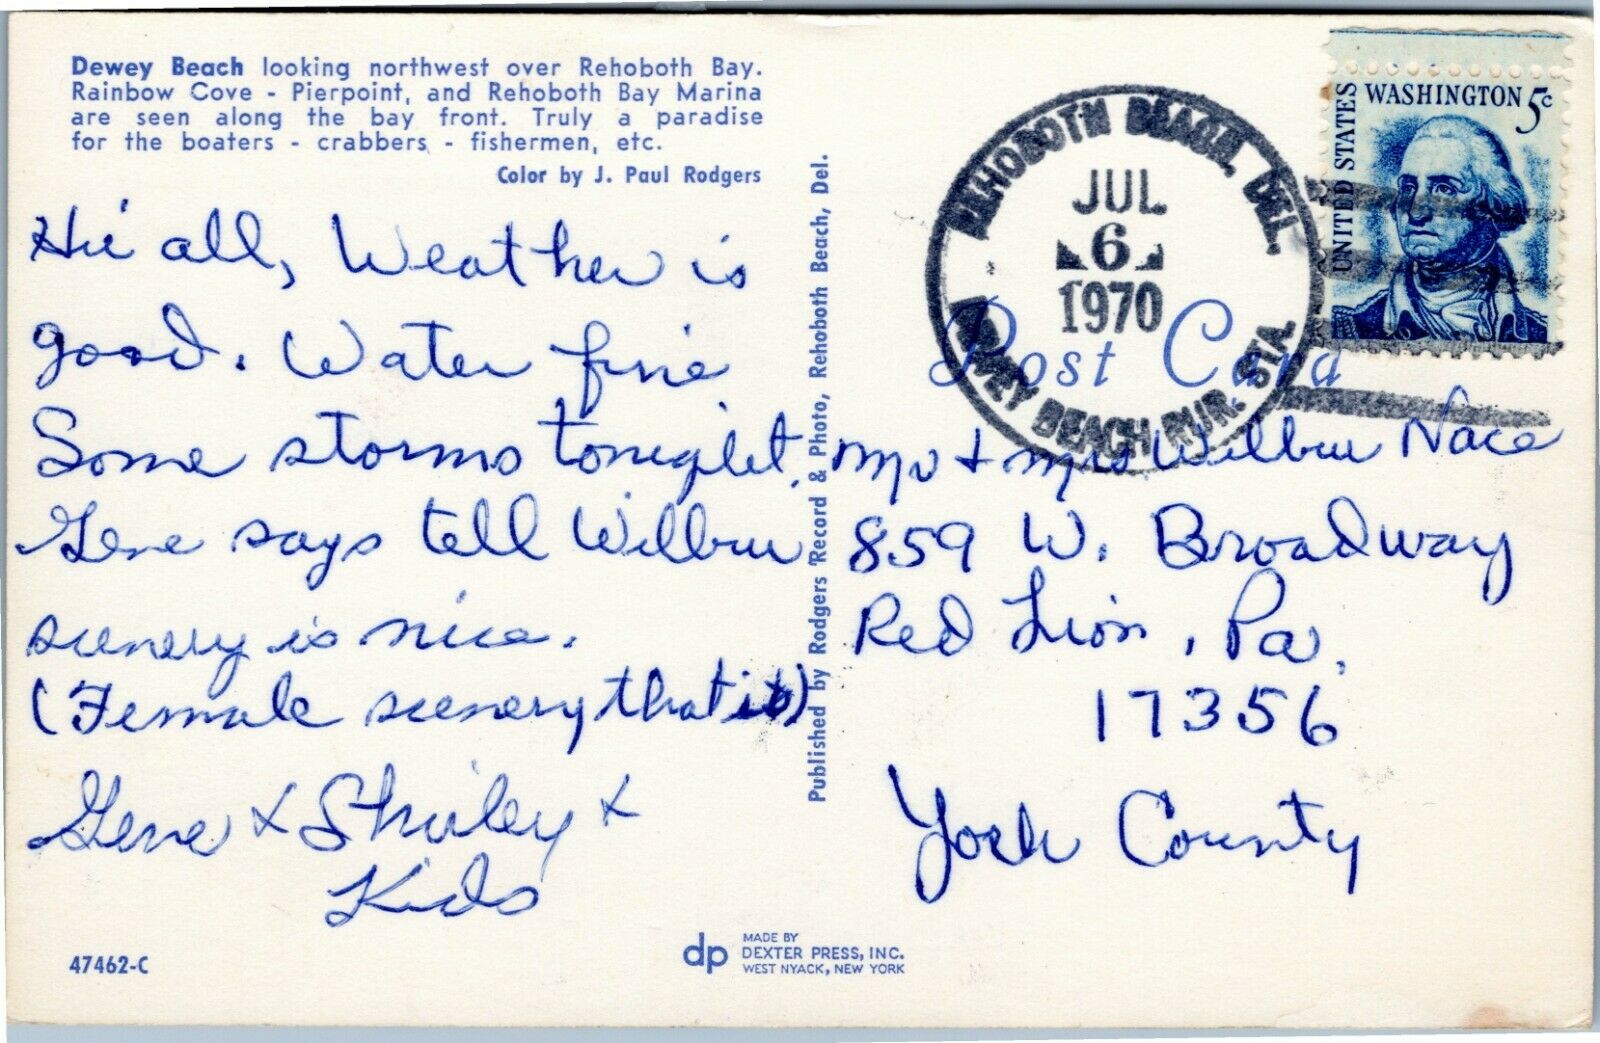 Dewey Beach looking northwest over Rehoboth Bay.
Rainbow Cove - Pierpoint, and Rehoboth Bay Marina
are seen along the bay front. Truly a paradise
for the boaters - crabbers - fishermen, etc.
Color by J. Paul Rodgers
Hi all, Weather is
good. Water fine
Some storms tonight.
Gene says tell Wilbur
scenery is nice.
(Female scenery that is)
Gene & Shirley &
Kids
47462-C
dp
MADE BY
DEXTER PRESS, INC.
WEST NYACK, NEW YORK
Published by Rodgers Record & Photo, Rehoboth Beach, Del.
REHOBOTH BEACH, DEL.
JUL
6
1970
DEWEY BEACH RUR. STA.
Post Card
UNITED STATES
WASHINGTON 5c
Mr & Mrs Wilbur Nace
859 W. Broadway
Red Lion, Pa.
17356
York County